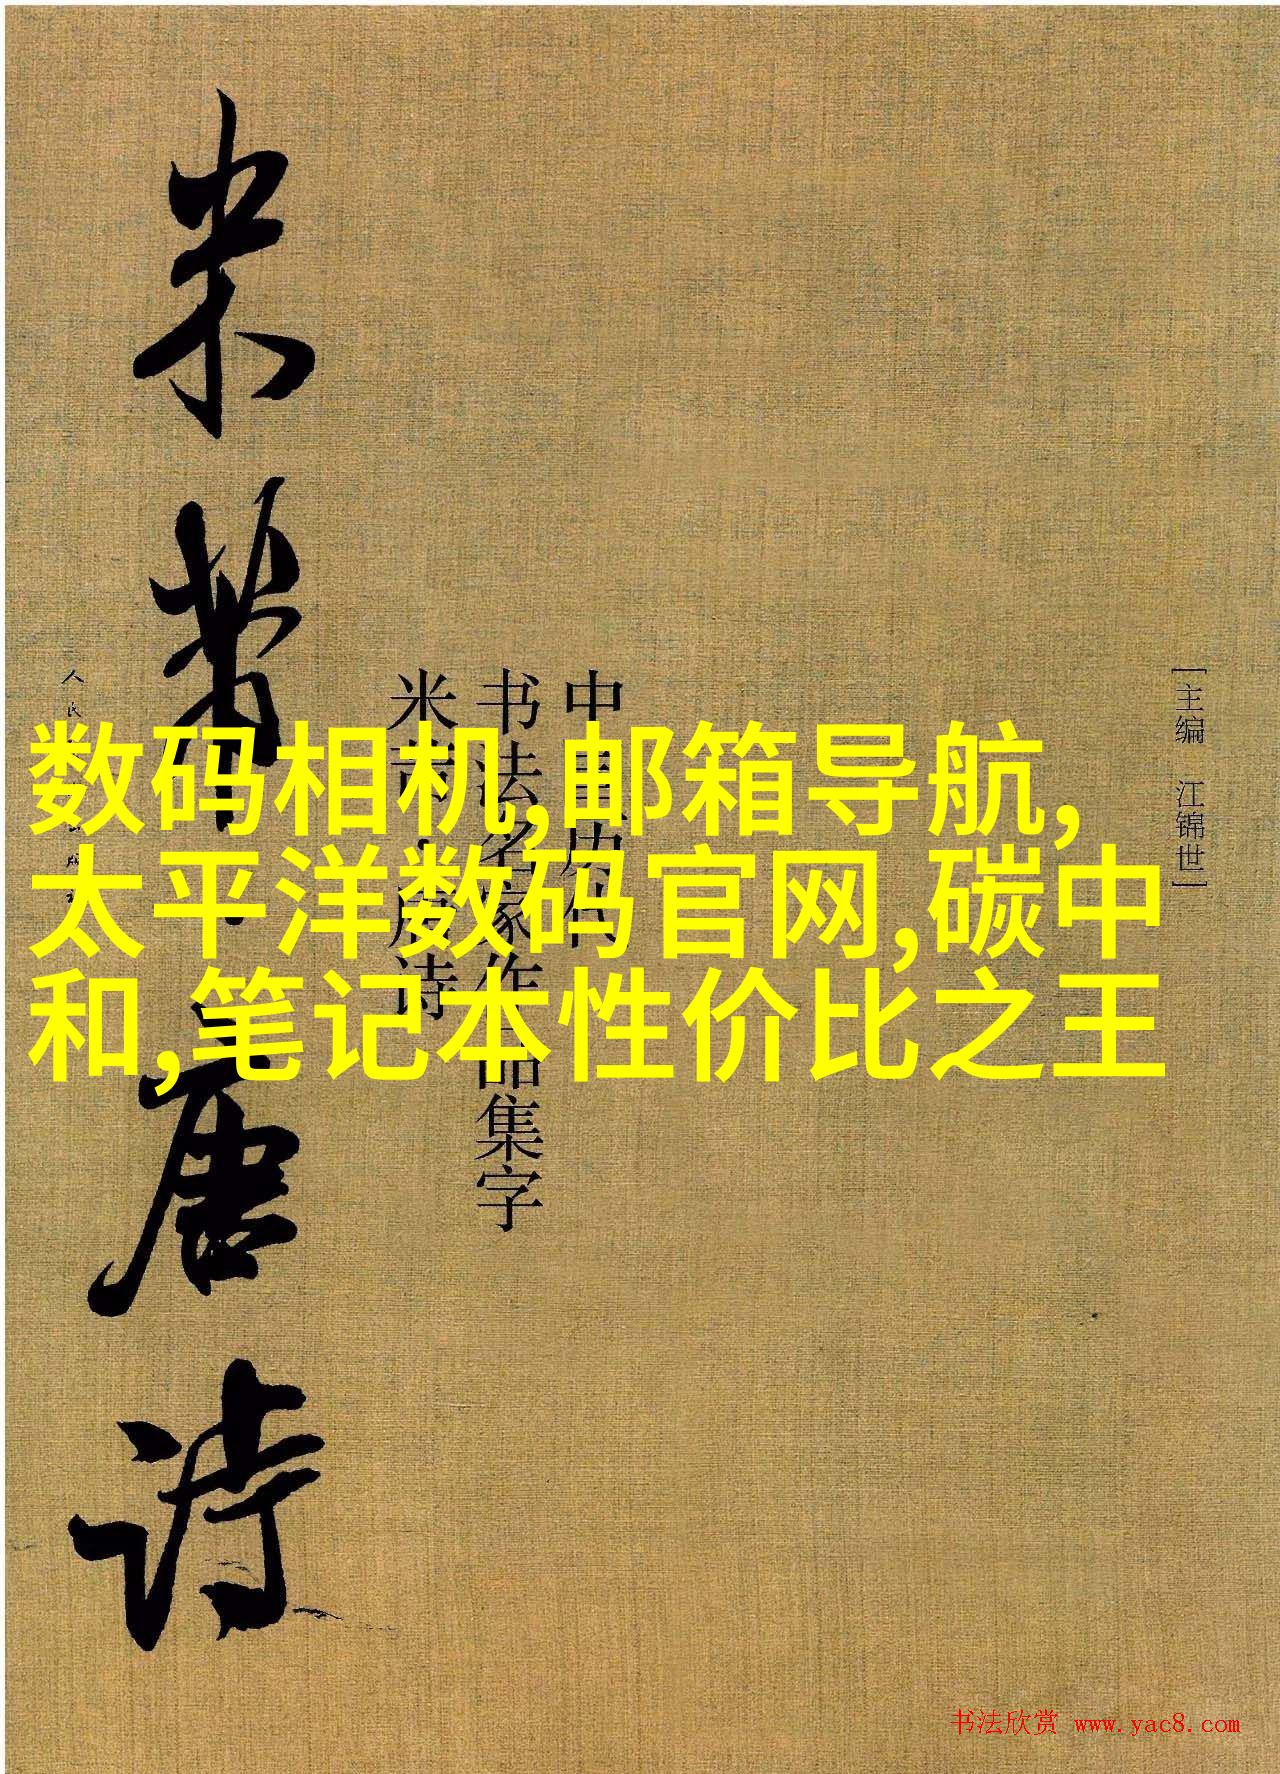 米芾·唐诗
人民
米芾·唐诗
书法名家作品集字
中国历代
[主编 江锦世]
数码相机,邮箱导航,
太平洋数码官网,碳中
和,笔记本性价比之王
书法欣赏 www.yac8.com